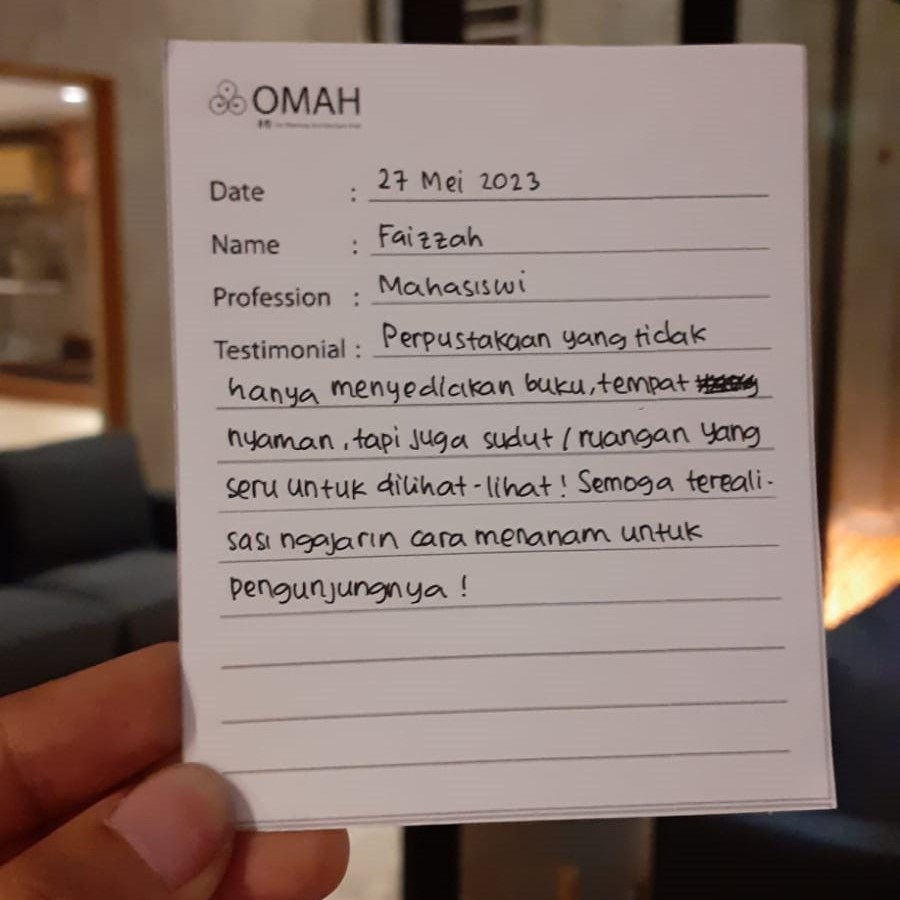 OMAH
Date : 27 Mei 2023
Name : Faizzah
Profession : Mahasiswi
Testimonial : Perpustakaan yang tidak
hanya menyediakan buku, tempat
nyaman, tapi juga sudut / ruangan yang
seru untuk dilihat-lihat! Semoga tereali-
sasi ngajarin cara menanam untuk
pengunjungnya!